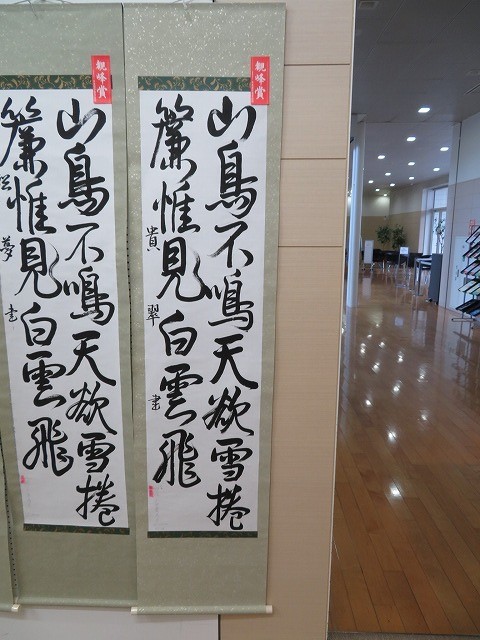 親峰賞
山鳥不鳴天欲雪捲
簾惟見白雲飛
貴翠書
親峰賞
山鳥不鳴天欲雪捲
簾惟見白雲飛
夢書